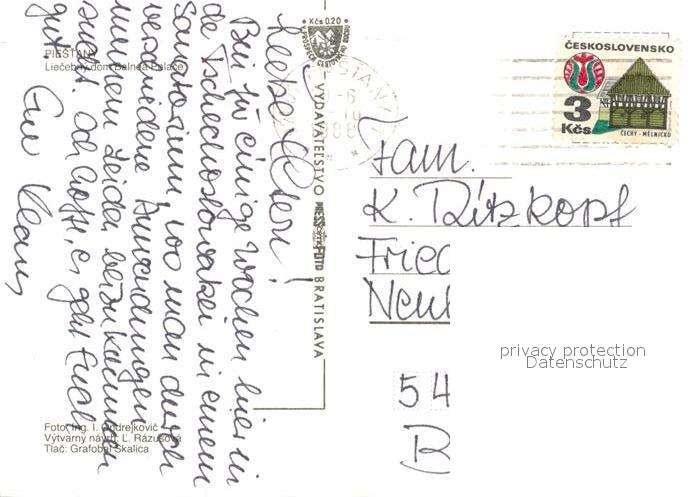 PIEŠŤANY
Liečebný dom Balnea Palace
Liebe Eltern!
Bin für einige Wochen hier in
de Tschechoslowakei in einem
Sanatorium, wo man durch
verschiedene Anwendungen
meinem Leiden beizukommen
sucht. Ich hoffe, es geht Euch
gut.
Euer Klaus
Foto: Ing. I. Ondrejkovič
Výtvarný návrh: Ľ. Rázusová
Tlač: Grafobal Skalica
Kčs 0,20
V PROSPECH CESTOVNÉHO RUCHU
VYDAVATEĽSTVO PRESSFOTO BRATISLAVA
PIEŠŤANY
ČESKOSLOVENSKO
3
Kčs
ČECHY - MĚLNICKO
Fam.
K. Ritzkopf
Fried
Neu
54
B
privacy protection
Datenschutz